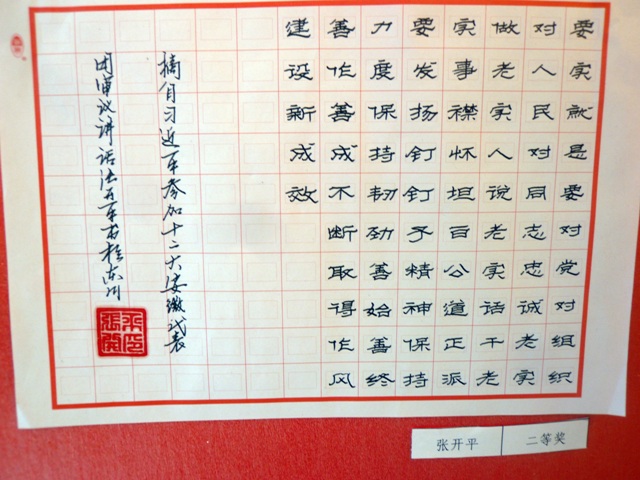 要实就是要对党对组织
对人民对同志忠诚老实
做老实人说老实话干老
实事襟怀坦白公道正派
要发扬钉钉子精神保持
力度保持韧劲善始善终
善作善成不断取得作风
建设新成效
摘自习近平参加十二大安徽代表
团审议讲话
张开平印
张开平
二等奖